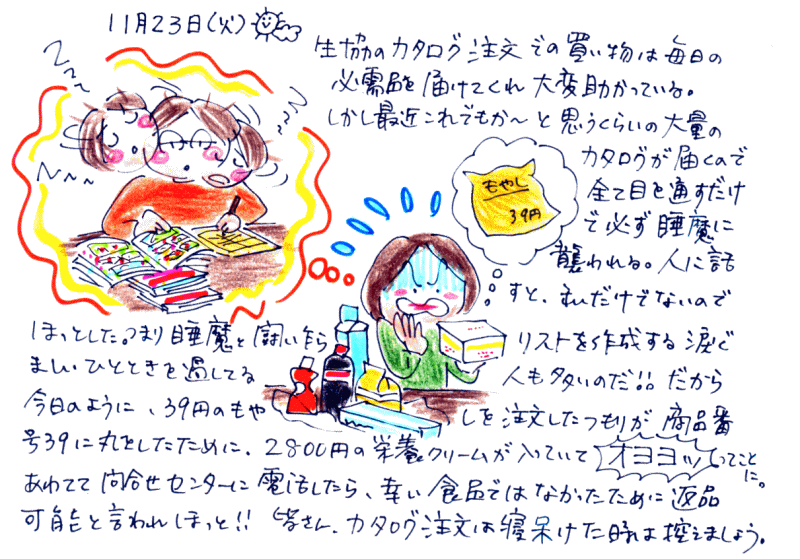 11月23日(火)
生協のカタログ注文での買い物は毎日の
必需品を届けてくれ大変助かっている。
しかし最近これでもか〜と思うくらいの大量の
カタログが届くので
全て目を通すだけ
で必ず睡魔に
襲われる。人に話
すと、私だけでないので
ほっとした。つまり睡魔と闘い乍ら
リストを作成する涙ぐ
ましいひとときを過してる
人も多いのだ!!だから
今日のように、39円のもや
しを注文したつもりが商品番
号39に丸をしたために、2800円の栄養クリームが入っていてオヨヨッってことに。
あわてて問合せセンターに電話したら、幸い食品ではなかったために返品
可能と言われほっと!!皆さん、カタログ注文は寝呆けた時は控えましょう。
もやし
39円
Z~~
Z~~
N~~~
~~N